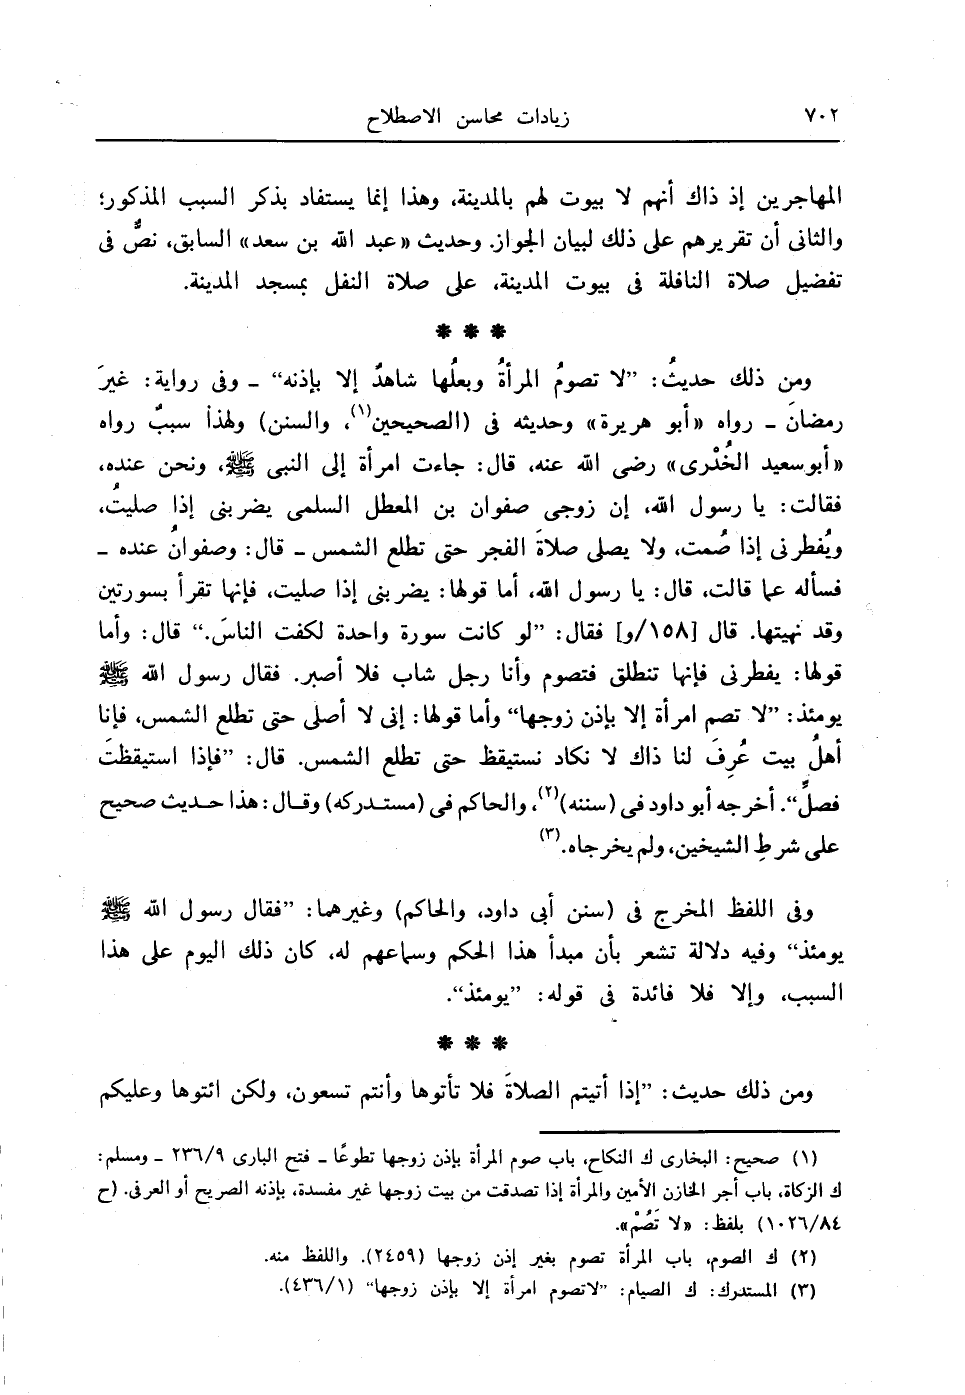 ٧٠٢ زيادات محاسن الاصطلاح
المهاجرين إذ ذاك أنهم لا بيوت لهم بالمدينة، وهذا إنما يستفاد بذكر السبب المذكور؛
والثانى أن تقريرهم على ذلك لبيان الجواز. وحديث «عبد الله بن سعد» السابق، نصٌّ فى
تفضيل صلاة النافلة فى بيوت المدينة، على صلاة النفل بمسجد المدينة.
* * *
ومن ذلك حديثُ: ”لا تصومُ المرأةُ وبعلُها شاهدٌ إلا بإذنه“ ـ وفى رواية: غيرَ
رمضانَ ـ رواه «أبو هريرة» وحديثه فى (الصحيحين(١)، والسنن) ولهذا سببٌ رواه
«أبو سعيد الخُدْرى» رضى الله عنه، قال: جاءت امرأة إلى النبى ﷺ، ونحن عنده،
فقالت: يا رسول الله، إن زوجى صفوان بن المعطل السلمى يضربنى إذا صليتُ،
ويُفطرنى إذا صُمت، ولا يصلى صلاةَ الفجر حتى تطلع الشمس ـ قال: وصفوانُ عنده ـ
فسأله عما قالت، قال: يا رسول الله، أما قولها: يضربنى إذا صليت، فإنها تقرأ بسورتين
وقد نهيتها. قال [١٥٨/و] فقال: ”لو كانت سورة واحدة لكفت الناسَ.“ قال: وأما
قولها: يفطرنى فإنها تنطلق فتصوم وأنا رجل شاب فلا أصبر. فقال رسول الله ﷺ
يومئذ: ”لا تصم امرأة إلا بإذن زوجها“ وأما قولها: إنى لا أصلى حتى تطلع الشمس، فإنا
أهلُ بيت عُرِفَ لنا ذاك لا نكاد نستيقظ حتى تطلع الشمس. قال: ”فإذا استيقظتَ
فصلِّ“. أخرجه أبو داود فى (سننه)(٢)، والحاكم فى (مستدركه) وقال: هذا حديث صحيح
على شرطِ الشيخين، ولم يخرجاه.(٣)
وفى اللفظ المخرج فى (سنن أبى داود، والحاكم) وغيرهما: ”فقال رسول الله ﷺ
يومئذ“ وفيه دلالة تشعر بأن مبدأ هذا الحكم وسماعهم له، كان ذلك اليوم على هذا
السبب، وإلا فلا فائدة فى قوله: ”يومئذ“.
* * *
ومن ذلك حديث: ”إذا أتيتم الصلاةَ فلا تأتوها وأنتم تسعون، ولكن ائتوها وعليكم
(١) صحيح: البخارى ك النكاح، باب صوم المرأة بإذن زوجها تطوعًا ـ فتح البارى ٢٣٦/٩ ـ ومسلم:
ك الزكاة، باب أجر الخازن الأمين والمرأة إذا تصدقت من بيت زوجها غير مفسدة، بإذنه الصريح أو العرفى. (ح
١٠٢٦/٨٤) بلفظ: «لا تَصُمْ».
(٢) ك الصوم، باب المرأة تصوم بغير إذن زوجها (٢٤٥٩). واللفظ منه.
(٣) المستدرك: ك الصيام: ”لاتصوم امرأة إلا بإذن زوجها“ (٤٣٦/١).